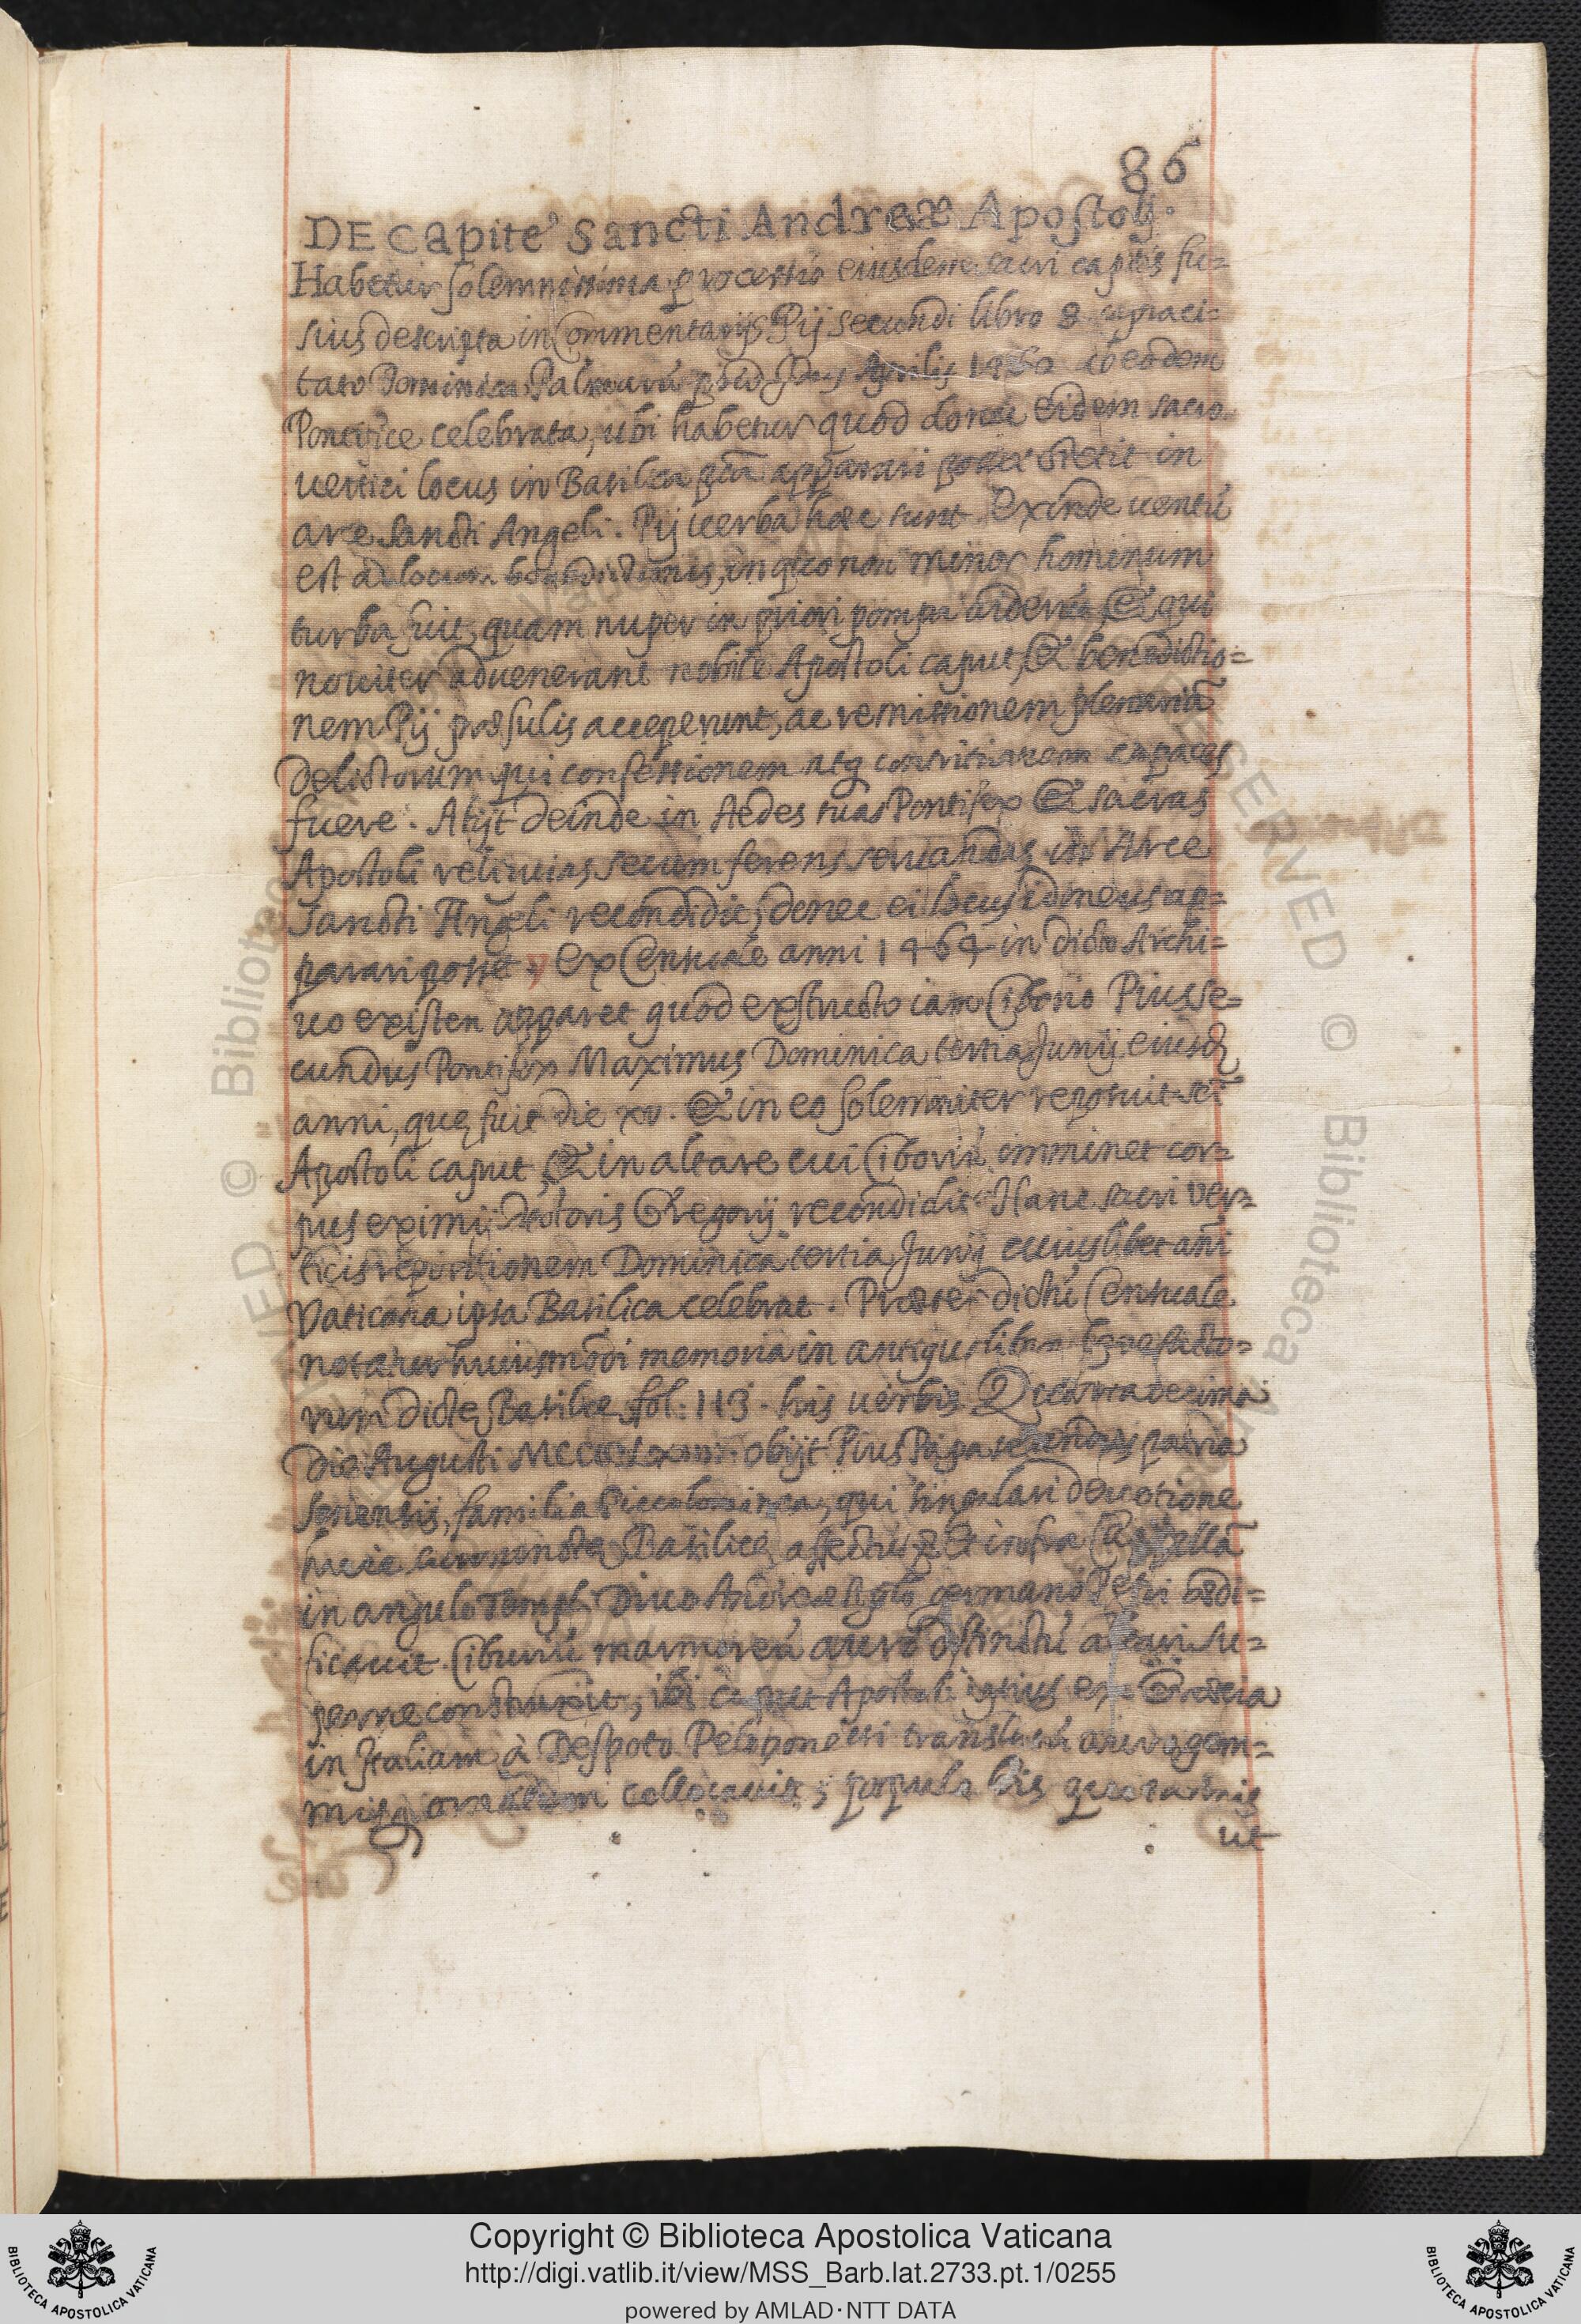 86
DE Capite Sancti Andreæ Apostoli.
Habetur solemnissima processio eiusdem sacri capitis fu=
sius descripta in Commentarijs Pij secundi libro 8
Dominica Palmarũ Aprilis ab eodem
Pontifice celebrata, ubi habetur quod donec eidem sacro
uertici locus in Basilica apparari stetit in
arce Sancti Angeli. Pij uerba hæc sunt. Exinde uentũ
est ad locum in quo non minor hominum
turba fuit, quam nuper in priori pompa & qui
nouiter aduenerant nobile Apostoli caput, & benedictio=
nem Pij præsulis acceperunt, ac remissionem plenariã
delictorum qui confessionem atq contritionem
fuere. Abijt deinde in Aedes suas Pontifex & sacras
Apostoli reliquias secum ferens seruandas in Arce
Sancti Angeli recondidit, donec ei locus idoneus ap=
parari posset. Ex Censuale anni 1464 in dicto Archi=
uo existen apparet quod exstructo iam Ciborio Pius se=
cundus Pontifex Maximus Dominica tertia Junij eiusd
anni, quę fuit die xv. & in eo solemniter reposuit
Apostoli caput, & in altare cui Ciboriũ imminet cor=
pus eximij Doctoris Gregorij recondidit. Hanc sacri ver=
ticis repositionem Dominica tertia Junij cuiuslibet
Vaticana ipsa Basilica celebrat. Præter dictũ Censuale
notatur huiusmodi memoria in antiquo libro benefacto=
rum dictę Basilicę fol. 113. his uerbis. Quarta decima
Die Augusti obijt Pius Papa secundus patria
senensis, familia Piccolominea, qui singulari deuotione
huic Basilicę & infra Capellã
in angulo Templi Diuo Andreæ germano Petri ædi=
ficauit. marmoreũ auro altari su=
perne construxit, ibi caput Apostoli ipsius ex Græcia
in Italiam à Despoto Peloponessi auro gem=
misq ornatum collocauit, populo bis quotannis
ut
Copyright © Biblioteca Apostolica Vaticana
http://digi.vatlib.it/view/MSS_Barb.lat.2733.pt.1/0255
powered by AMLAD·NTT DATA
BIBLIOTECA APOSTOLICA VATICANA
BIBLIOTECA APOSTOLICA VATICANA